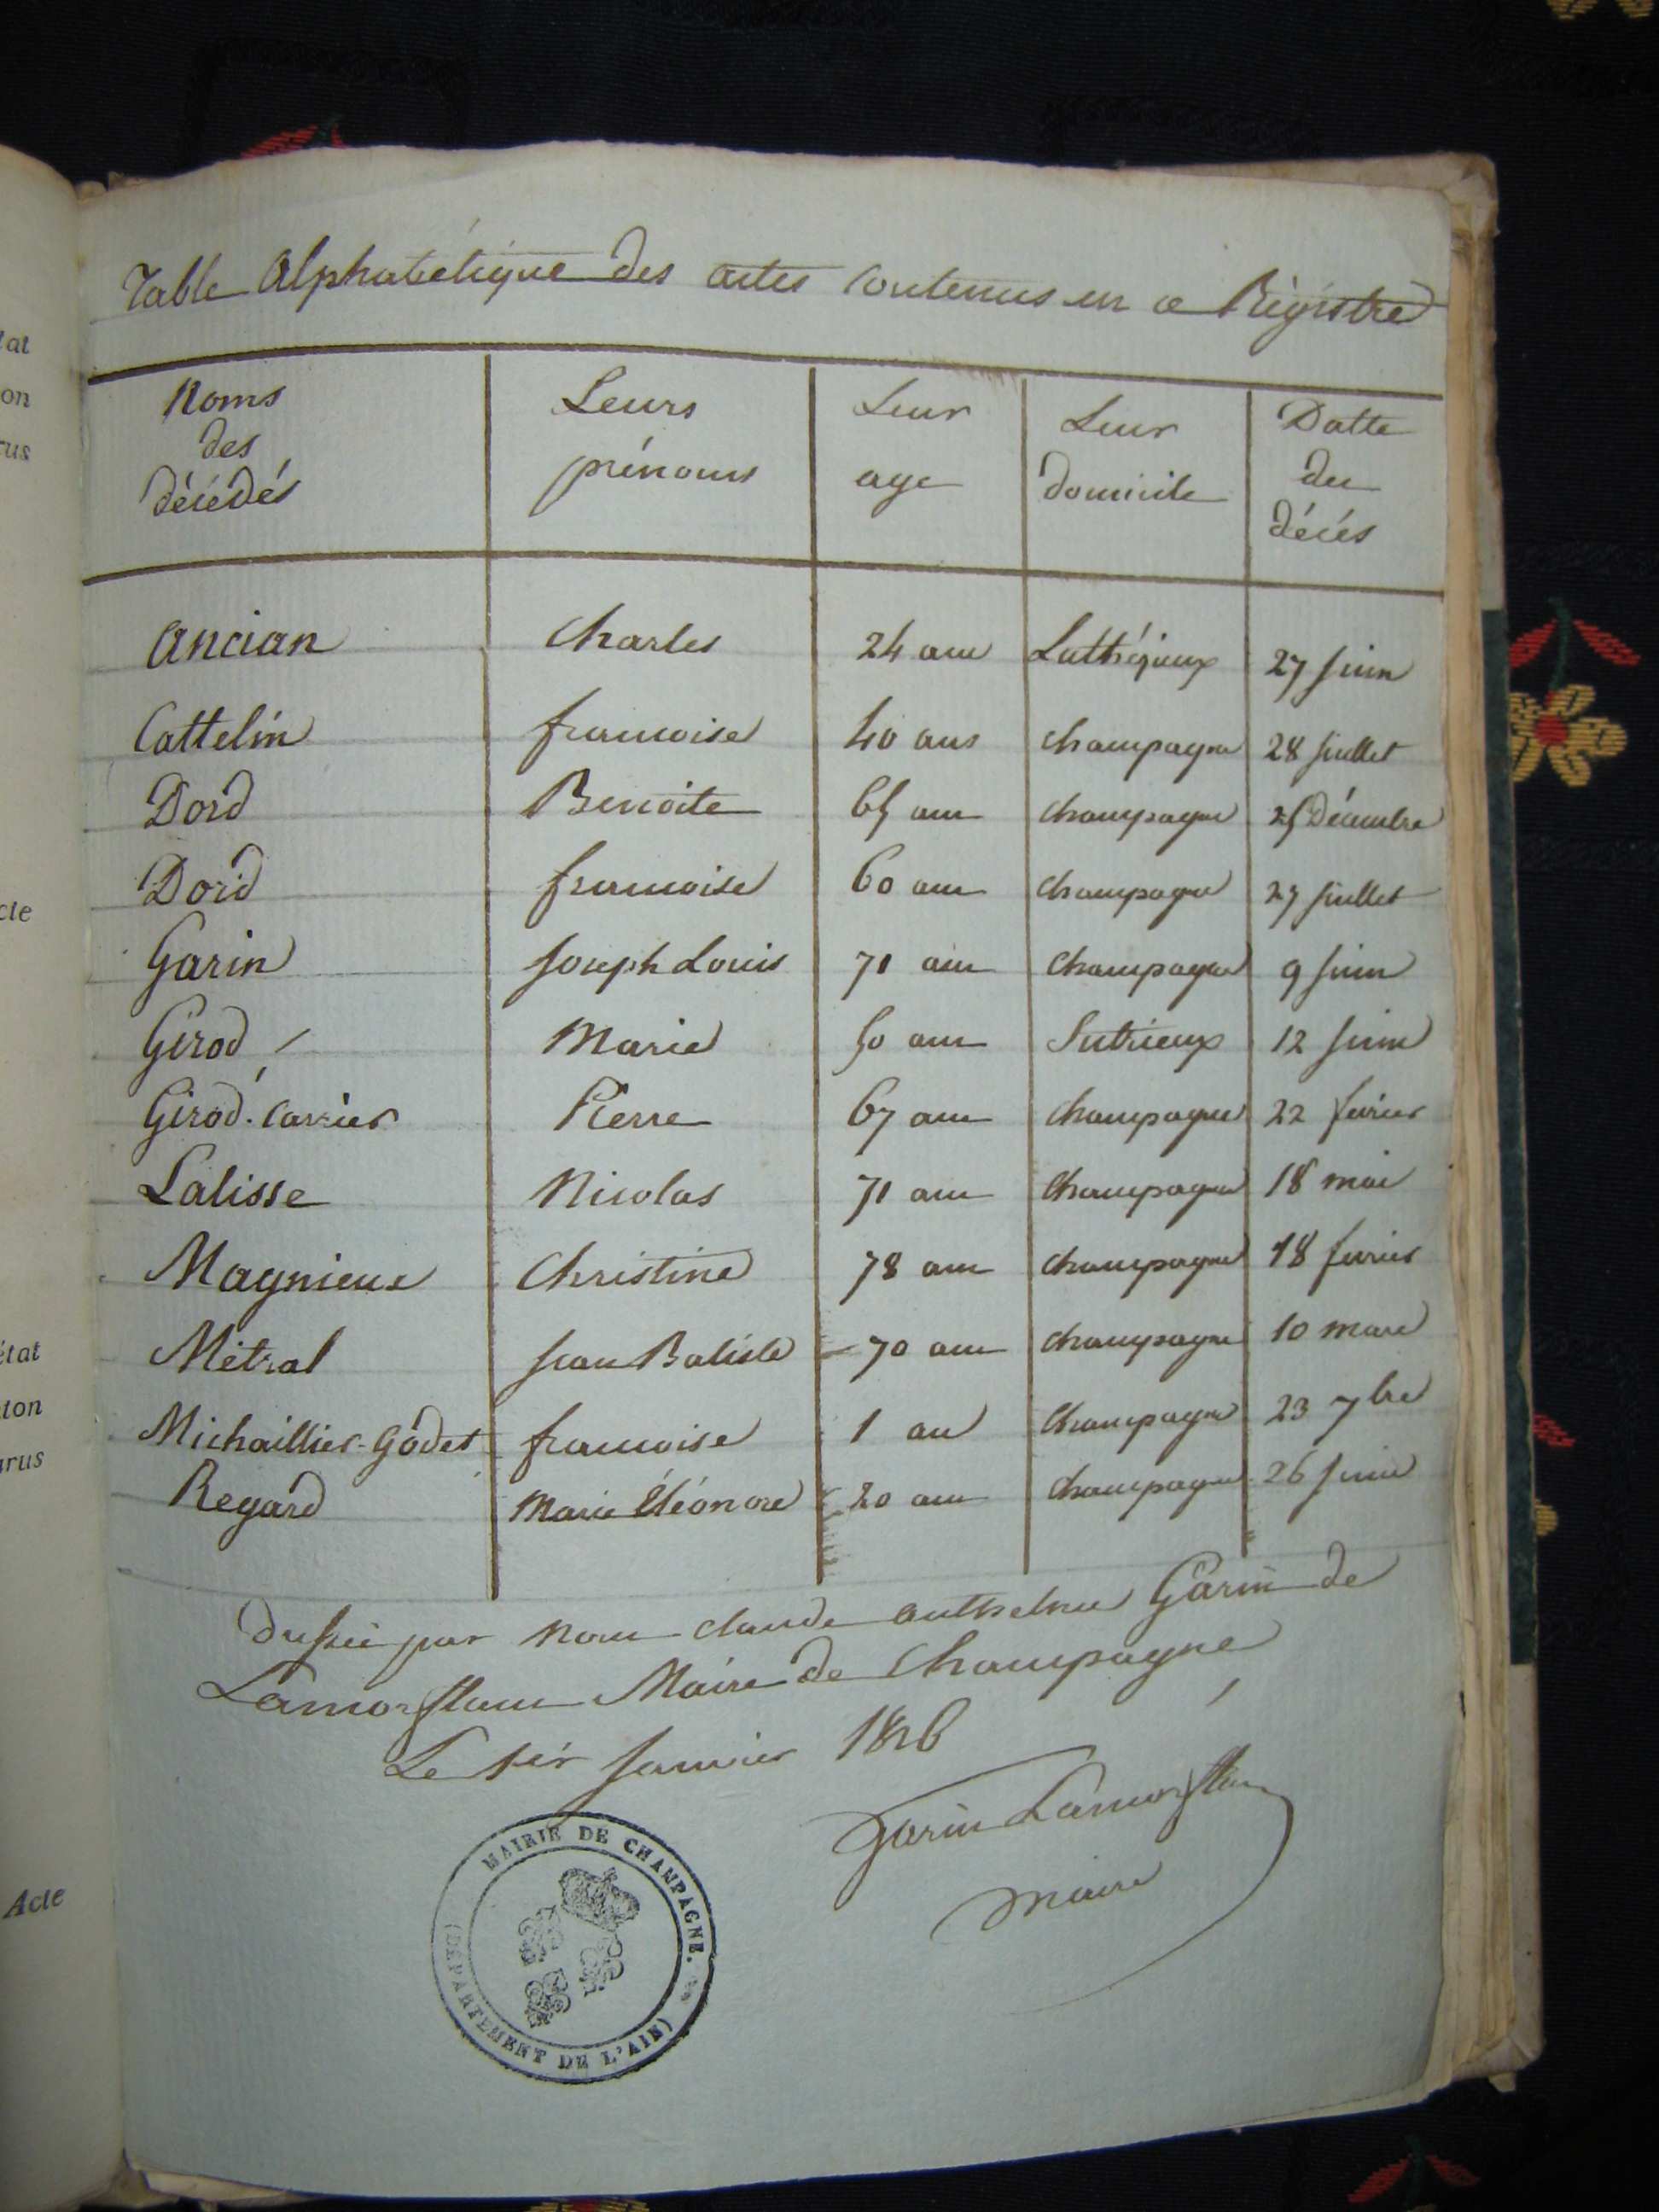 tat
on
rus
cte
état
ton
arus
Acte
Table Alphabétique des actes contenus en ce Régistre
Noms des décédés | Leurs prénoms | Leur age | Leur domicile | Datte du décés
Ancian | Charles | 24 ans | Luthézieux | 27 Juin
Cattelin | francoise | 40 ans | champagne | 28 Juillet
Dord | Benoite | 65 ans | champagne | 25 Décembre
Dord | francoise | 60 ans | champagne | 27 Juillet
Garin | Joseph Louis | 71 ans | champagne | 9 Juin
Girod | Marie | 50 ans | Sutrieux | 12 Juin
Girod-Carrier | Pierre | 67 ans | champagne | 22 fevrier
Lalisse | Nicolas | 71 ans | champagne | 18 mai
Magnieux | Christine | 78 ans | champagne | 18 fevrier
Métral | Jean Batiste | 70 ans | champagne | 10 mars
Michaillier-Godet | francoise | 1 an | champagne | 23 7bre
Regard | Marie Éléonore | 20 ans | champagne | 26 Juin
Dressée par nous claude anthelme Garin de
Lamorflanc Maire de Champagne
Le 1er Janvier 1826
Garin Lamorflanc
maire
MAIRIE DE CHAMPAGNE.
(DÉPARTEMENT DE L'AIN)